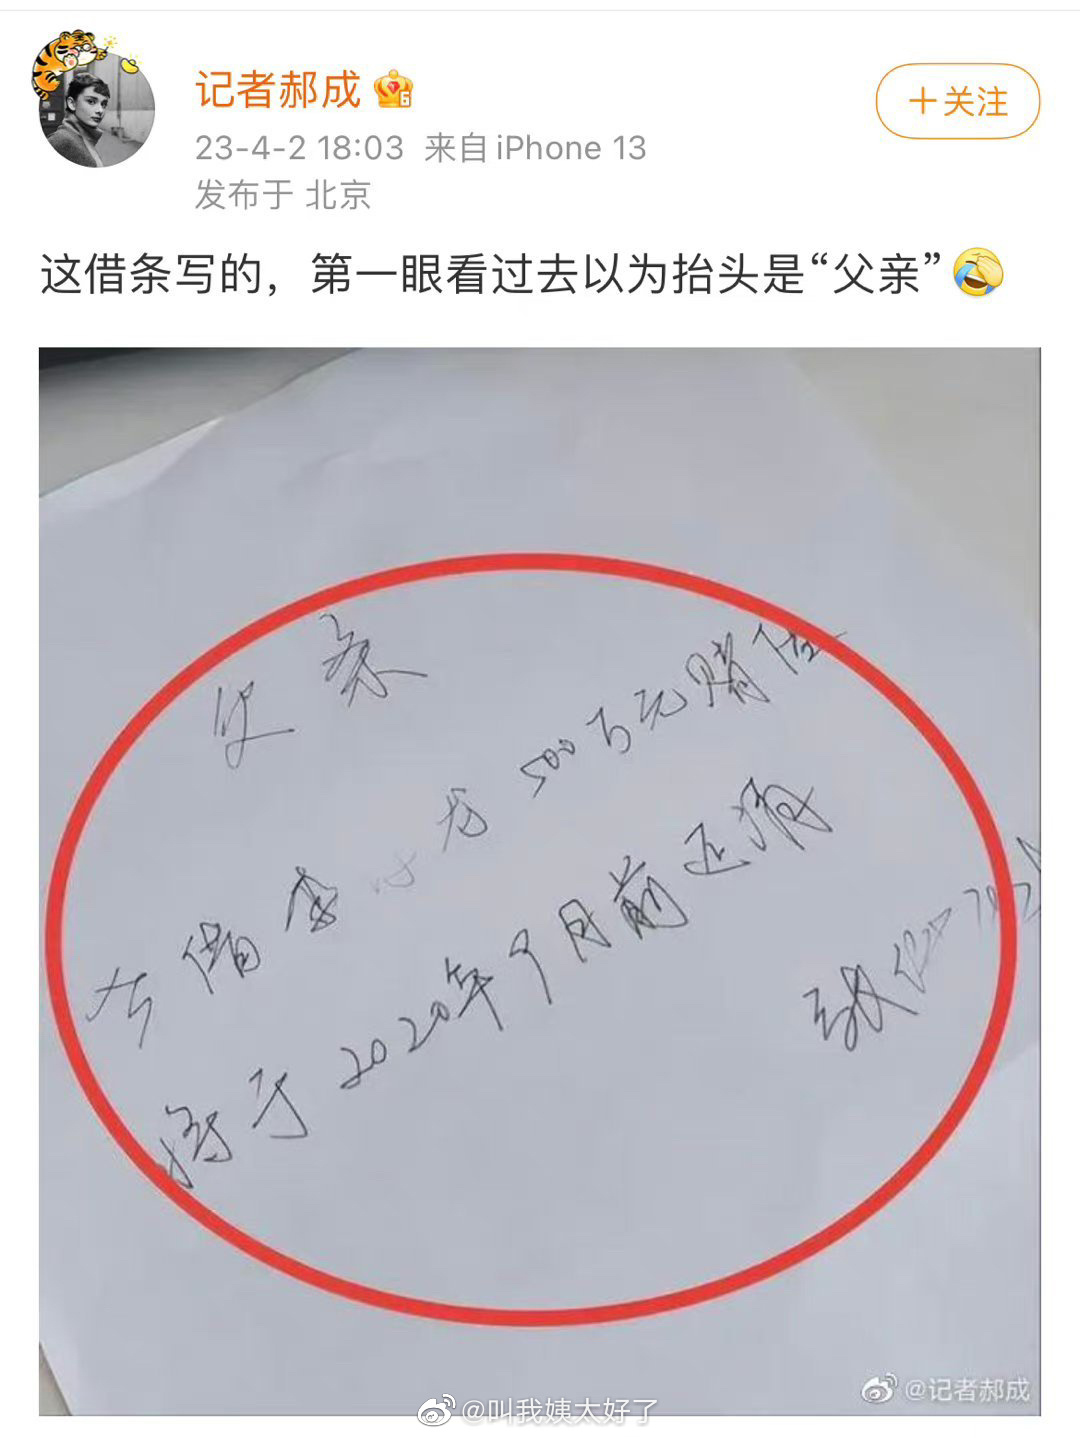 记者郝成
+关注
23-4-2 18:03 来自 iPhone 13
发布于 北京
这借条写的，第一眼看过去以为抬头是“父亲”🤣
欠条
今借李龙500万元赌债
将于2020年9月前还清
@记者郝成
@叫我姨太好了